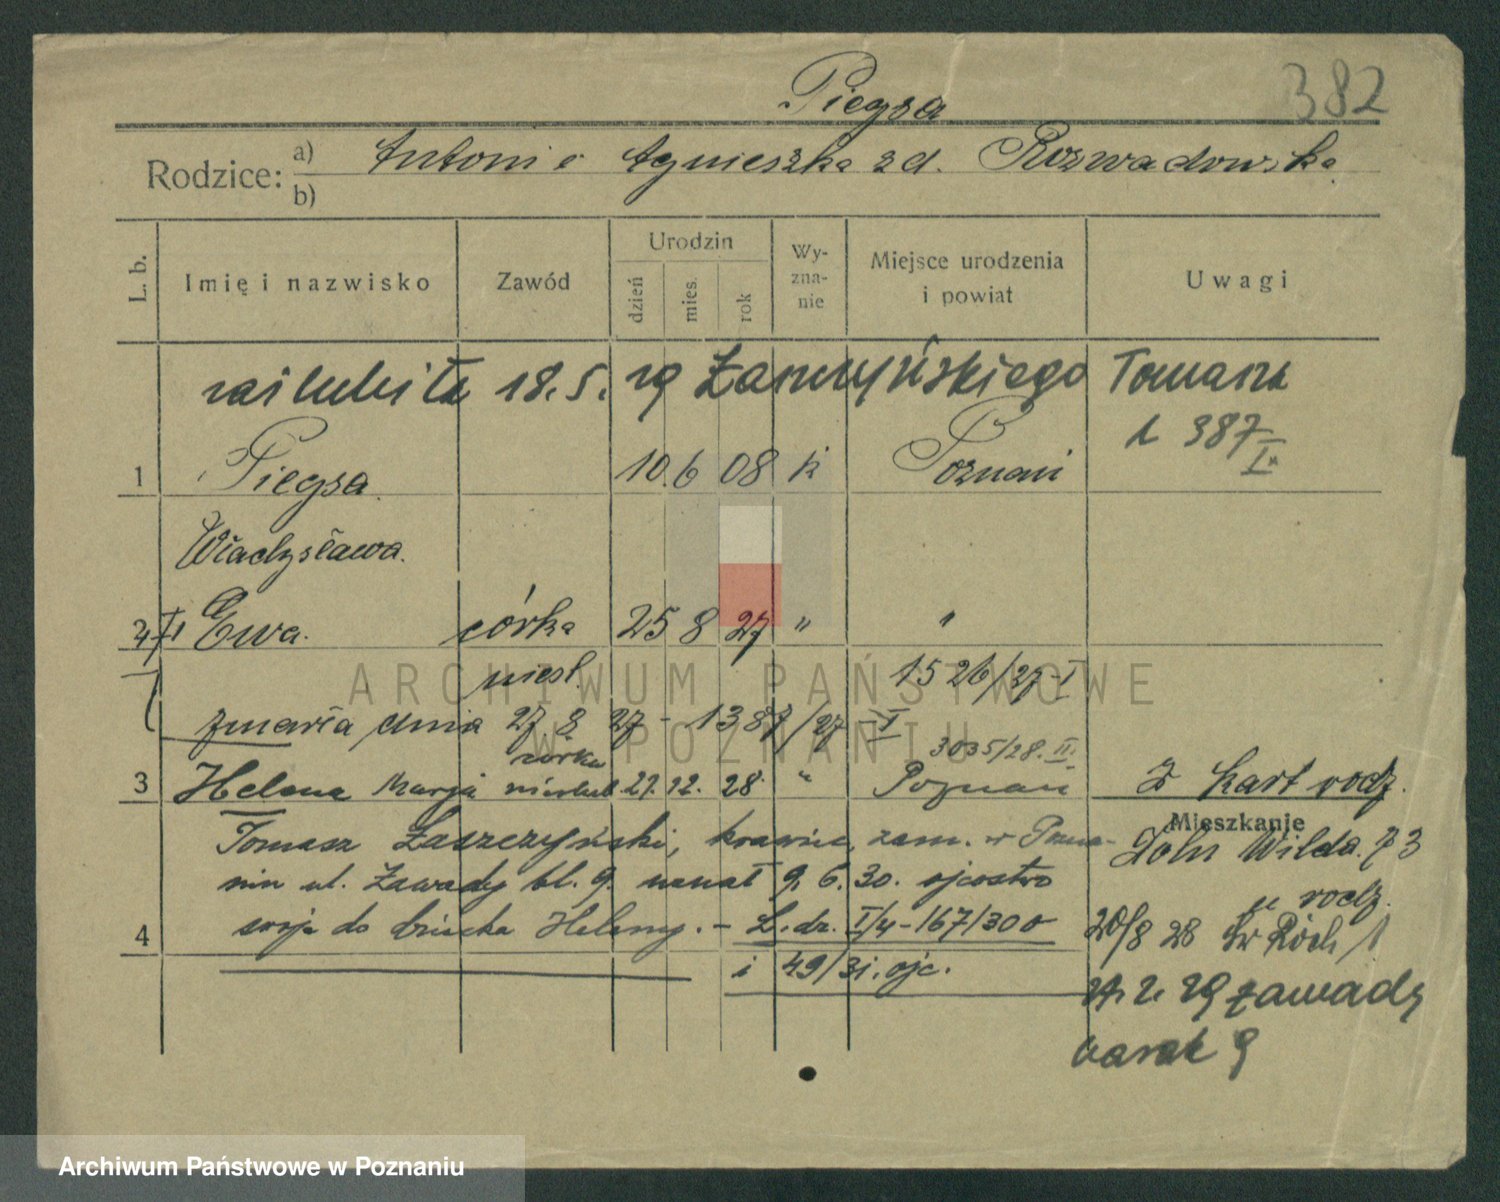 Piegsa
382
Rodzice: a) Antoni i Agnieszka zd. Rozwadowska
b)
L. b. Imię i nazwisko Zawód Urodzin dzień mies. rok Wy-zna-nie Miejsce urodzenia i powiat Uwagi
zaślubiła 18.5. 29 Łaszczyńskiego Tomasza
1 387 I.
1 Piegsa 10. 6 08 k Poznań
Władysława.
2 Ewa. córka 25 8 27 " "
niesl. 1526/27-I
zmarła dnia 27 8 27 - 1387/27 I
córka 3035/28. II.
3 Helena Marja nieślub 27. 12. 28. " Poznań Z kart rodz.
Mieszkanie
Tomasz Łaszczyński, krawiec, zam. w Pozna-
niu ul. Zawady bl. 9. uznał 9. 6. 30. ojcostwo
Doln Wilda 73
u rodz.
4 swoje do dziecka Heleny. - L. dz. I/4-167/30 o
20/8 28 Św Roch 1
i 49/31. ojc.
29 Zawady
barak 9
ARCHIWUM PAŃSTWOWE
W POZNANIU
Archiwum Państwowe w Poznaniu